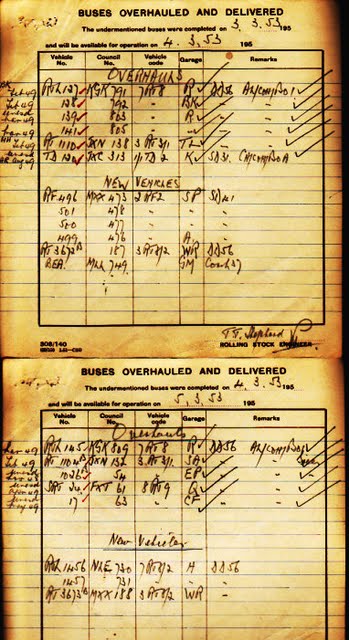 BUSES OVERHAULED AND DELIVERED
The undermentioned buses were completed on 3.3.53 195
and will be available for operation on 4.3.53 195
Vehicle No. Council No. Vehicle code Garage Remarks
OVERHAULS
Feb 49 RTL 127 KGK 791 7RT8 R SD56
Feb 49 128 792 " BK "
139 803 " R "
Mar 49 141 805 " " "
Feb 49 RT 1110 JXN 138 3RT3/1 TL "
Aug 49 TD 120 JXC 313 1/TD2 K SD31
NEW VEHICLES
RF 496 MXX 473 2RF2 SP SD41
501 478 " " "
500 477 " " "
499 476 " A "
RT 3672 187 3RT8/2 WR SD56
BEA. MLL 749 GM
308/140
ROLLING STOCK ENGINEER
BUSES OVERHAULED AND DELIVERED
The undermentioned buses were completed on 4.3.53 195
and will be available for operation on 5.3.53 195
Vehicle No. Council No. Vehicle code Garage Remarks
Overhauls
Mar 49 RTL 145 KGK 809 7RT8 R SD56
Feb 49 RT 1104 JXN 132 3RT3/1 SA "
1026 54 " EP "
34 FXT 61 8RT9 Q "
17 63 " CF "
New Vehicles
RTL 1456 NLE 730 7RT8/2 H SD56
1457 731 " " "
RT 3673 MXX 188 3RT8/2 WR "